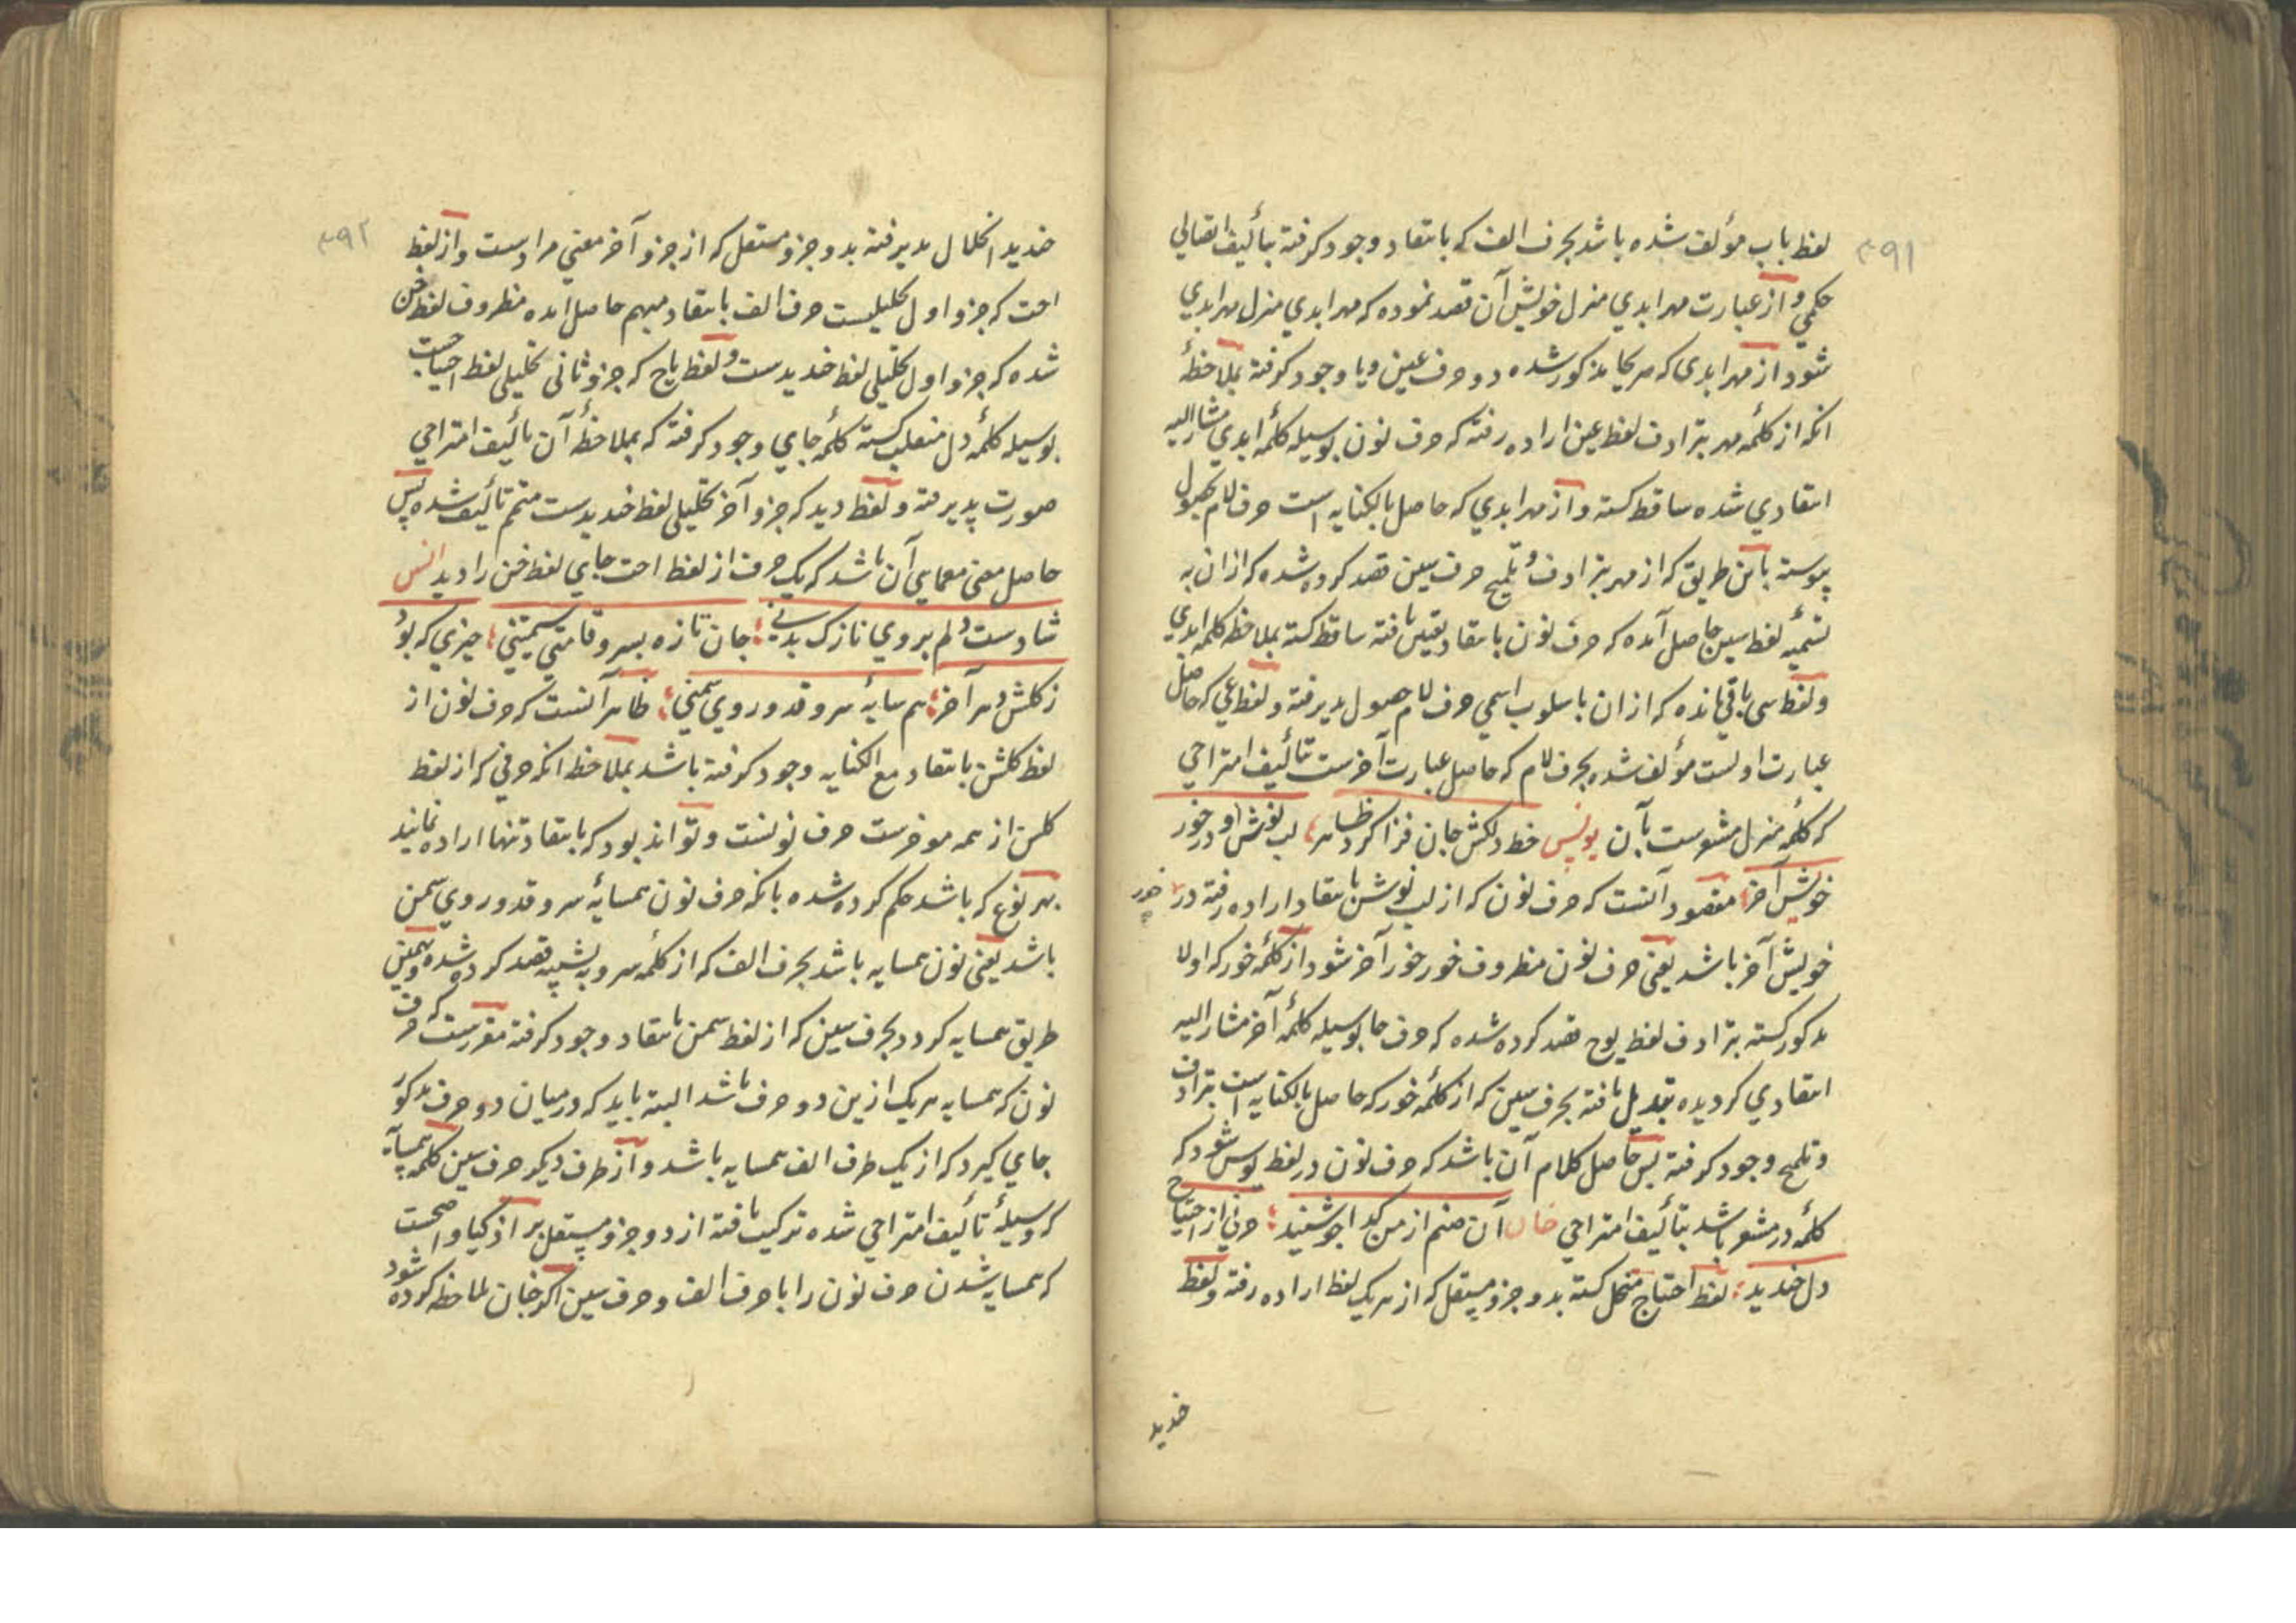 ۳۹۱
لفظ باب مؤلف شده باشد بحرف الف که بانتقاد وجود کرفته بتألیف اتصالی
حکمی و از عبارت مهر ابدی منزل خویش آن قصد نموده که مهر ابدی منزل مهر ابدی
شود از مهر ابدی که مریحا مذکور شده دو حرف عین و یا وجود کرفته بملاحظهٔ
انکه از کلمهٔ مهر بترادف لفظ عین اراده رفته که حرف نون بوسیله کلمهٔ ابدی مشار الیه
انتقادی شده ساقط کشته و از مهر ابدی که حاصل بالکنایه است حرف لام بحصول
پیوسته باین طریق که از مهر بترادف و تلمیح حرف سین قصد کرده شده که از ان به
تسمیه لفظ سین حاصل آمده که حرف نون بانتقاد تعین یافته ساقط کشته بملاحظه کلمه ابدی
و لفظ سی باقی مانده که از ان باسلوب اسمی حرف لام حصول پدیرفته و لفظ عی که حاصل
عبارت اولست مؤلف شده بحرف لام که حاصل عبارت آخرست تألیف امتزاجی
که کلمه منزل مشعرست بآن یونس خط دلکش جان فزا کرد ظاهر لب نوشش او در خور
خویش آخر مقصود آنست که حرف نون که از لب نوشش بانتقاد اراده رفته در خور
خویش آخر باشد یعنی حرف نون مظروف خور خور آخر شود از کلمهٔ خور که اولا
مذکور کشته بترادف لفظ یوح قصد کرده شده که حرف حا بوسیله کلمهٔ آخر مشار الیه
انتقادی کردیده تبدیل یافته بحرف سین که از کلمهٔ خور که حاصل بالکنایه است بترادف
و تلمیح وجود کرفته پس حاصل کلام آن باشد که حرف نون در لفظ یوس شود که
کلمهٔ در مشعر باشد بتألیف امتزاجی خان آن صنم از من کدا جو شنید حرفی از احتیاج
دل خندید لفظ احتیاج منحل کشته بدو جزو مستقل که از هر یک لفظ اراده رفته و لفظ
خندید
۳۹۲
خندید انحلال پدیرفته بدو جزو مستقل که از جزو آخر معنی مرادست و از لفظ
احت که جزو اول تحلیلیست حرف الف بانتقاد مبهم حاصل امده مظروف لفظ خن
شده که جزو اول تحلیلی لفظ خندیدست و لفظ یاج که جزو ثانی تحلیلی لفظ احتیاجست
بوسیله کلمهٔ دل منقلب کشته کلمهٔ جای وجود کرفته که بملاحظهٔ آن تألیف امتزاجی
صورت پدیرفته و لفظ دید که جزو آخر تحلیلی لفظ خندیدست متمم تألیف شده پس
حاصل معنی معمایی آن باشد که یک حرف از لفظ احت جای لفظ خن را دید انس
شادست دلم بروی نازک بدنی جان تازه بسرو قامتی سیمتنی چیزی که بود
ز کلشن دهر آخر هم سایهٔ سرو قد و روی سمنی ظاهر آنست که حرف نون از
لفظ کلشن بانتقاد مع الکنایه وجود کرفته باشد بملاحظ انکه حرفی که از لفظ
کلشن از همه موخرست حرف نونست و تواند بود که بانتقاد تنها اراده نمایند
بهر نوع که باشد حکم کرده شده بانکه حرف نون همسایهٔ سرو قد و روی سمن
باشد یعنی نون همسایه باشد بحرف الف که از کلمهٔ سرو به تشبیه قصد کرده شده و بهمین
طریق همسایه کردد بحرف سین که از لفظ سمن بانتقاد وجود کرفته مقررست که حرف
نون که همسایه هر یک ازین دو حرف باشد البته باید که درمیان دو حرف مذکور
جای کیرد که از یک طرف الف همسایه باشد و از طرف دیکر حرف سین کلمه همسایه
که وسیلهٔ تألیف امتزاجی شده ترکیب یافته از دو جزو مستقل
که همسایه شدن حرف نون را با حرف الف و حرف سین اکر جان ملاحظه کرده شود